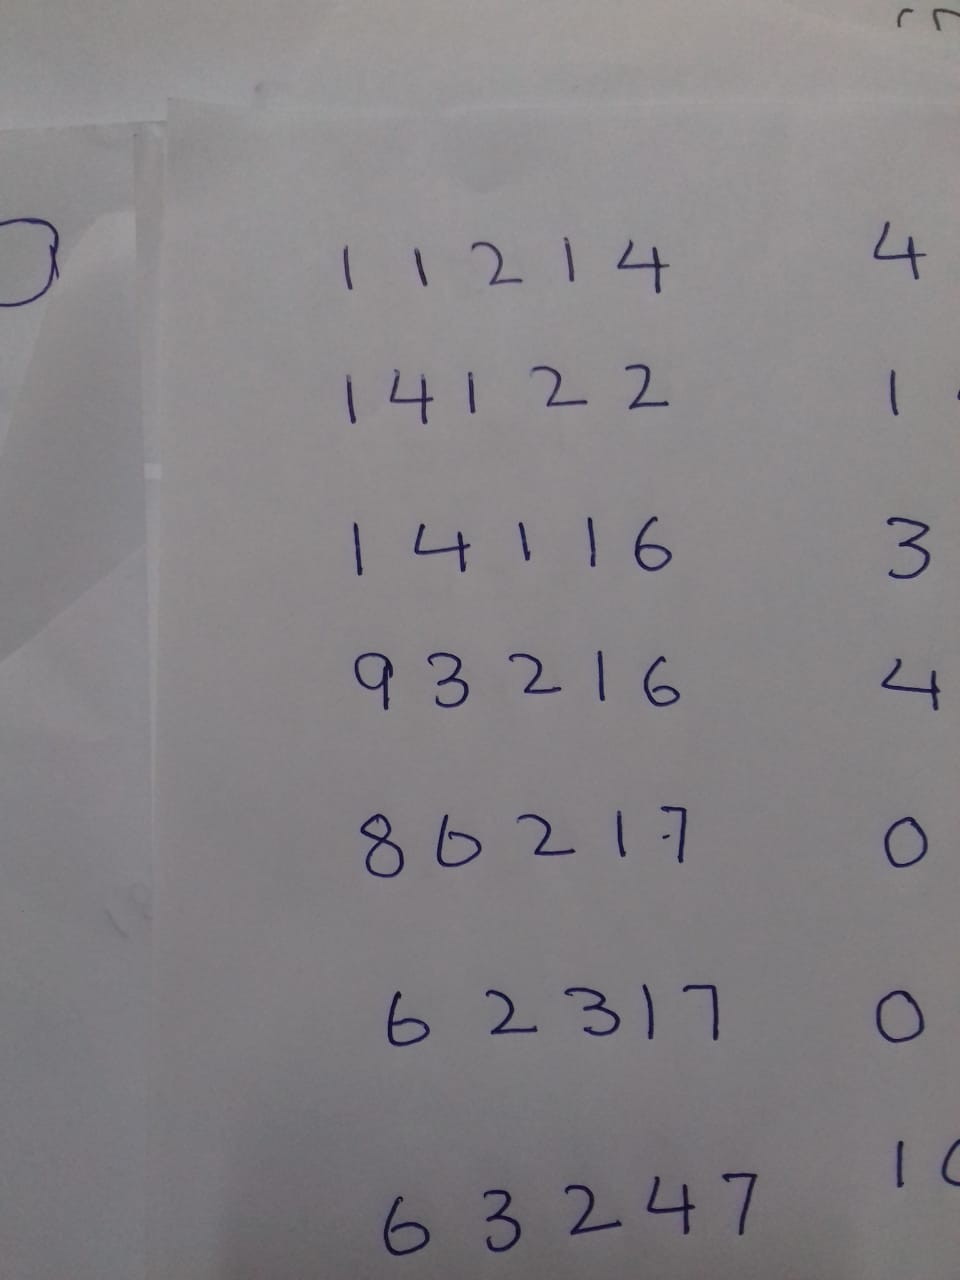 1 1 2 1 4 4
1 4 1 2 2 1
1 4 1 1 6 3
9 3 2 1 6 4
8 6 2 1 7 0
6 2 3 1 7 0
6 3 2 4 7 1